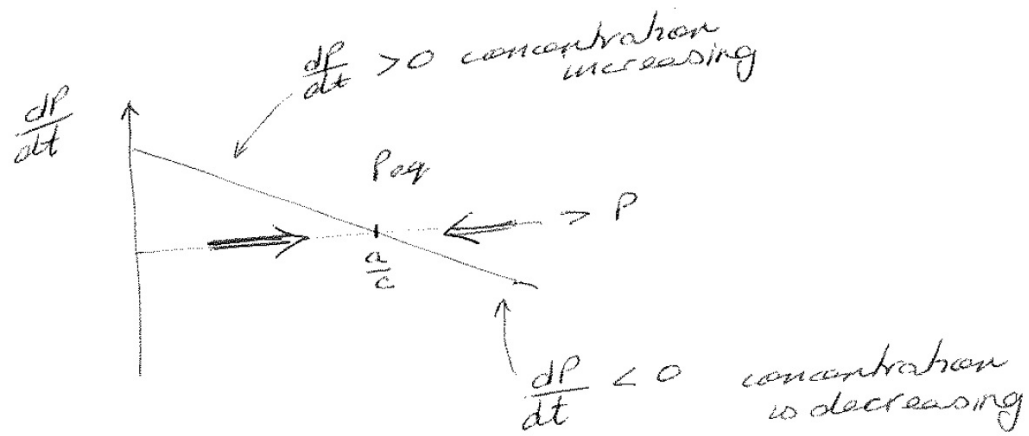 dP/dt > 0 concentration
increasing
dP/dt
Peq
P
a/c
dP/dt < 0 concentration
is decreasing